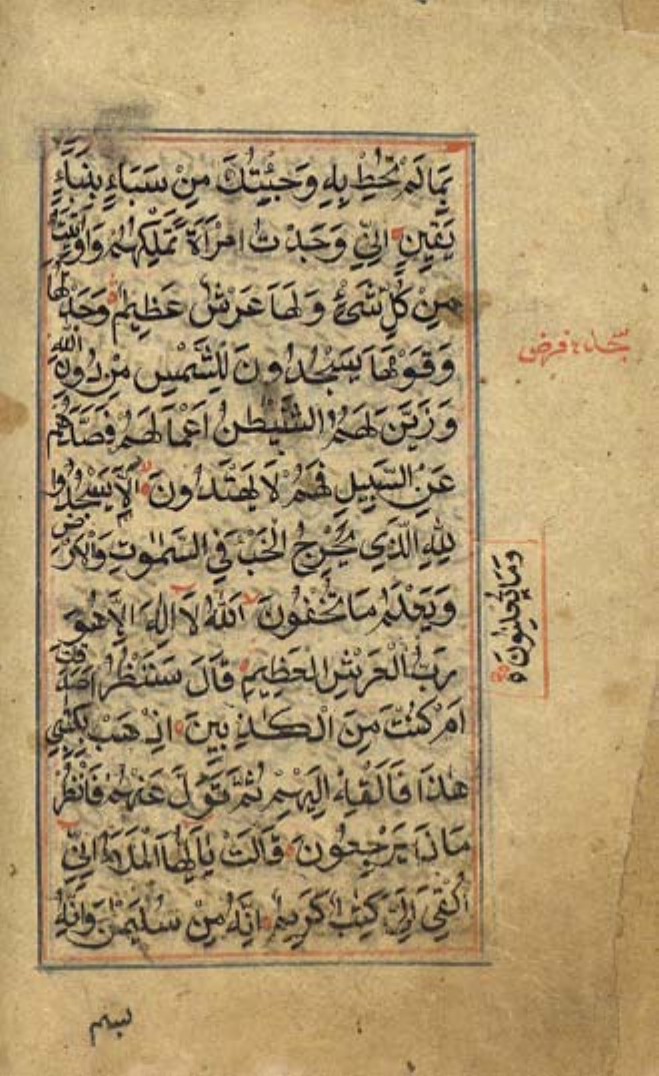 بِمَا لَمْ تُحِطْ بِهِ وَجِئْتُكَ مِنْ سَبَاءٍ بِنَبَاءٍ
يَقِينٍ اِنِّي وَجَدْتُ امْرَاَةً تَمْلِكُهُمْ وَاُوتِيَتْ
مِنْ كُلِّ شَيْءٍ وَلَهَا عَرْشٌ عَظِيمٌ وَجَدْتُهَا
وَقَوْمَهَا يَسْجُدُونَ لِلشَّمْسِ مِنْ دُونِ اللهِ
وَزَيَّنَ لَهُمُ الشَّيْطٰنُ اَعْمَالَهُمْ فَصَدَّهُمْ
عَنِ السَّبِيلِ فَهُمْ لَا يَهْتَدُونَ اَلَّا يَسْجُدُوا
لِلّٰهِ الَّذِي يُخْرِجُ الْخَبْءَ فِي السَّمٰوٰتِ وَالْاَرْضِ
وَيَعْلَمُ مَا تُخْفُونَ اَللهُ لَا اِلٰهَ اِلَّا هُوَ
رَبُّ الْعَرْشِ الْعَظِيمِ قَالَ سَنَنْظُرُ اَصَدَقْتَ
اَمْ كُنْتَ مِنَ الْكٰذِبِينَ اِذْهَبْ بِكِتٰبِي
هٰذَا فَاَلْقِهْ اِلَيْهِمْ ثُمَّ تَوَلَّ عَنْهُمْ فَانْظُرْ
مَاذَا يَرْجِعُونَ قَالَتْ يٰاَيُّهَا الْمَلَؤُا اِنِّي
اُلْقِيَ اِلَيَّ كِتٰبٌ كَرِيمٌ اِنَّهُ مِنْ سُلَيْمٰنَ وَاِنَّهُ
وَمَا تُعْلِنُونَ
سجده فرض
بسم